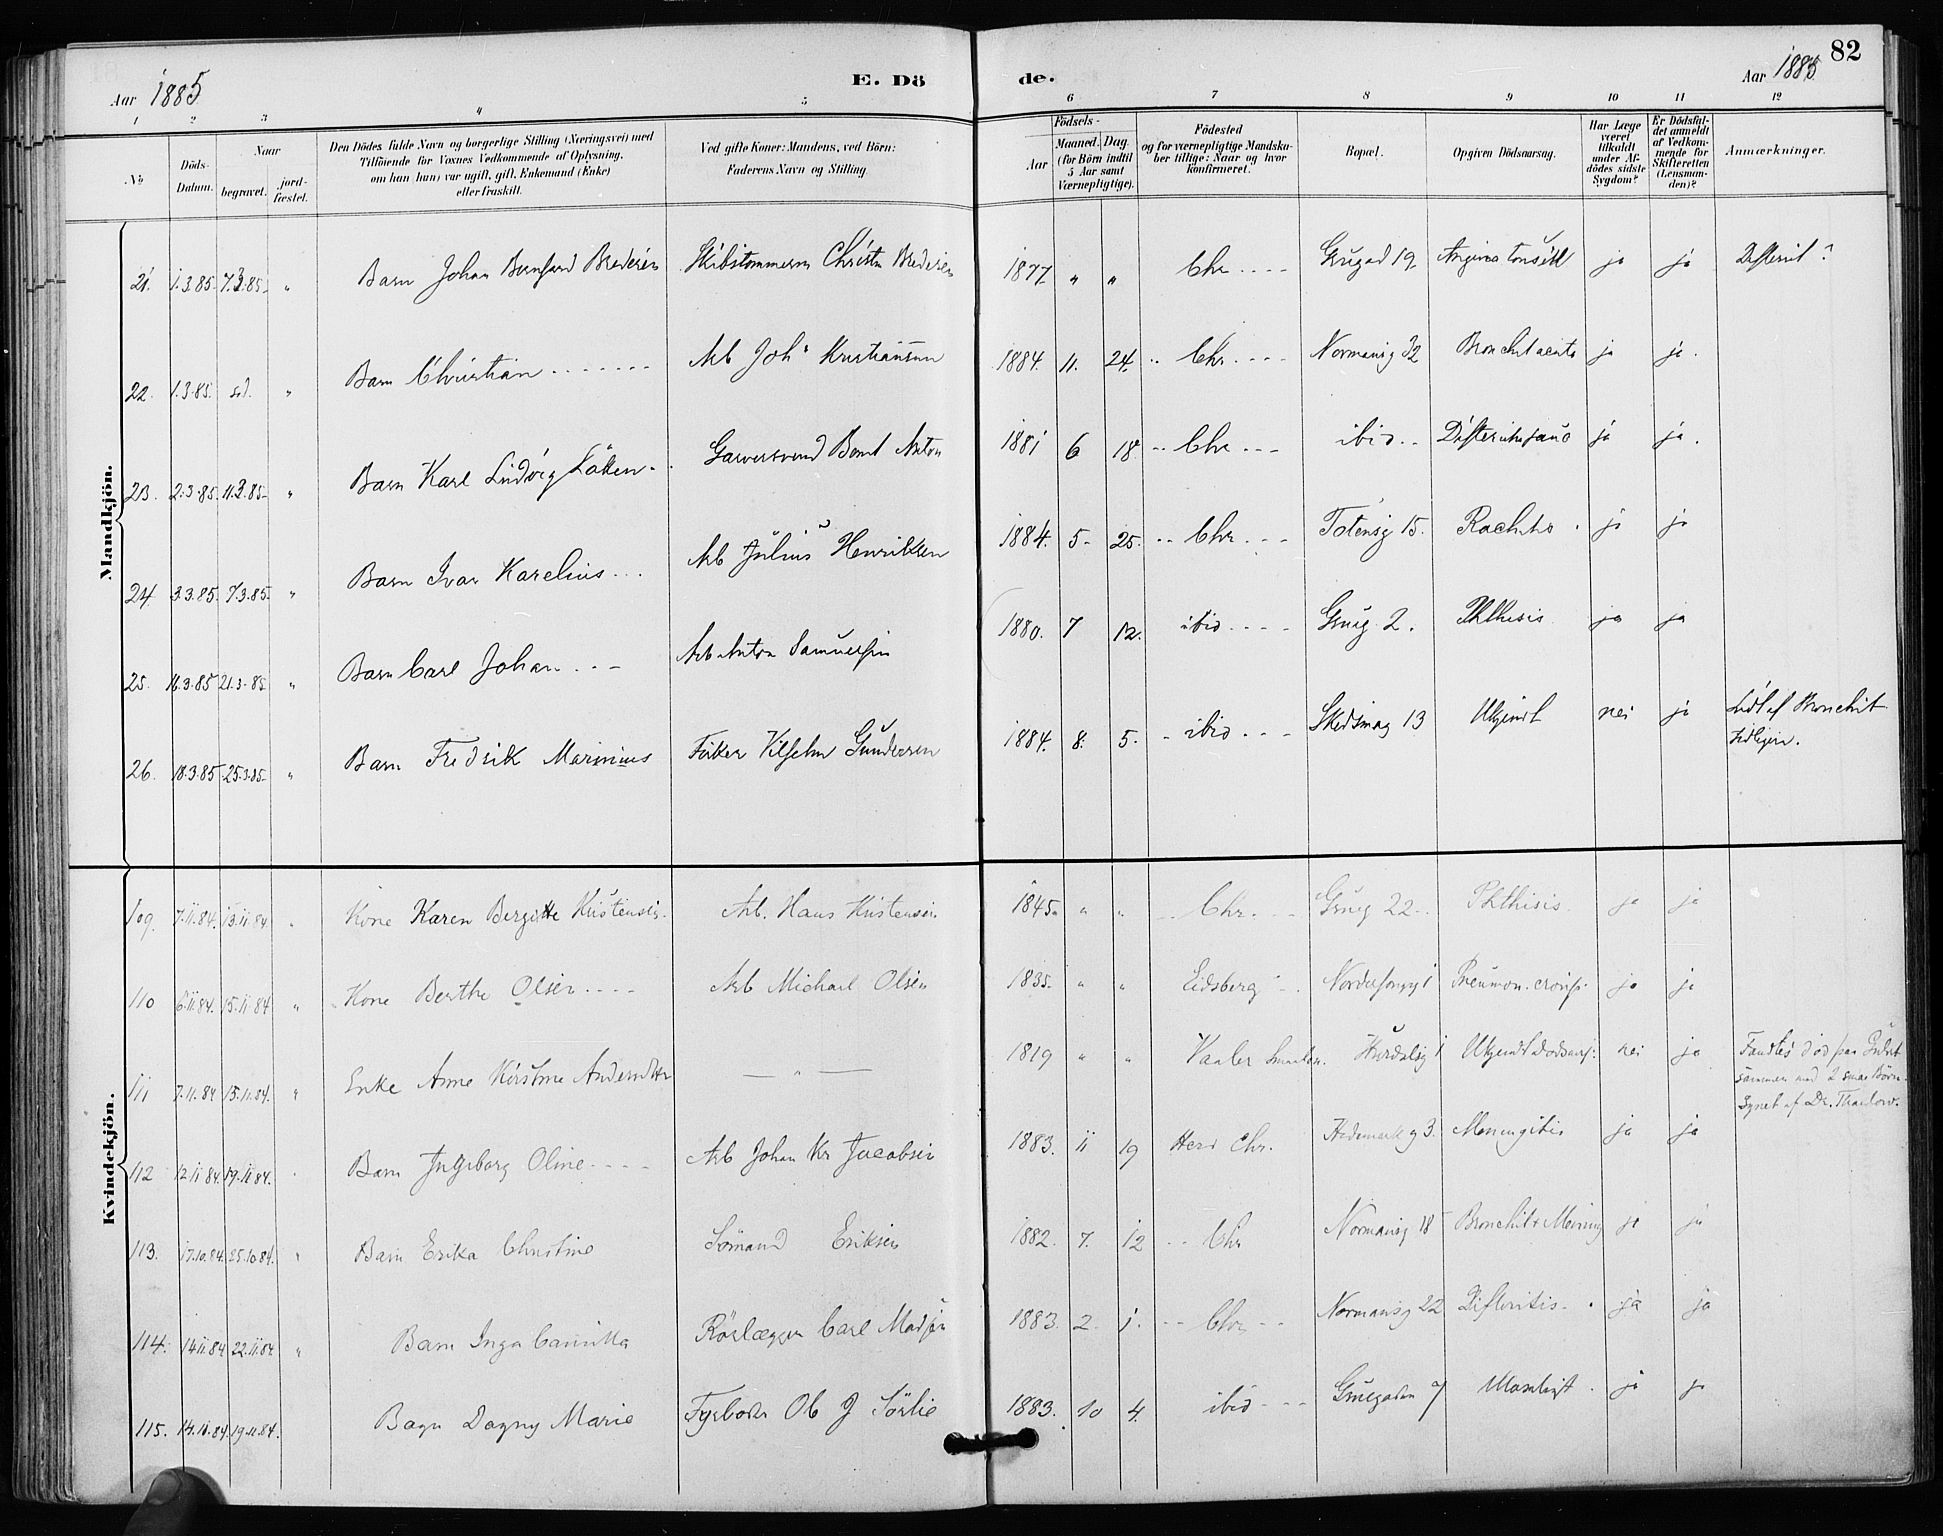 82
Aar 1885 E. Dö de. Aar 1885
1 2 3 4 5 6 7 8 9 10 11 12
No Döds-Datum. Naar begravet. jord-fæstet. Den Dödes fulde Navn og borgerlige Stilling (Næringsvei) med Tilföiende for Voxnes Vedkommende af Oplysning, om han (hun) var ugift, gift, Enkemand (Enke) eller fraskilt. Ved gifte Koner: Mandens, ved Börn: Faderens Navn og Stilling. Födsels- Aar Maaned. Dag. (for Börn indtil 5 Aar samt Værnepligtige). Födested og for værnepligtige Mandskaber tillige: Naar og hvor konfirmeret. Bopæl. Opgiven Dödsaarsag. Har Læge været tilkaldt under Afdödes sidste Sygdom? Er Dödsfaldet anmeldt af Vedkommende for Skifteretten (Lensmanden)? Anmærkninger.
Mandkjön.
21. 1.3.85. 7.3.85. „ Barn Johan Bernhard Skibstømmerm 1877. „ „ Chr. Grugad 19 Angina tonsill ja ja Difterit?
22. 1.3.85. „ Barn Christian Arb Joh. Kristiansen 1884. 11. 24. Chr. Normansg 32 Bronchit acuta ja ja.
23. 2.3.85. 11.3.85. „ Barn Karl Ludvig Garversvend Anton 1881 6 18 Chr ibid. ja ja.
24 3.3.85. 7.3.85. „ Barn Ivar Karelius Arb Julius Henriksen 1884. 5. 25. Chr. Totensg 15. Rachitis ja ja
25. 16.3.85 21.3.85 „ Barn Carl Johan Arb Anton Samuelsen 1880. 7 12. ibid Grug 2. Phthisis ja ja
26. 18.3.85 25.3.85. „ Barn Fredrik Marinius Vilhelm Gundersen 1884. 8. 5. ibid Skedsmog 13 Ukjendt nei ja Lidt af Bronchit tidligere.
Kvindekjön.
109. 7.11.84. 13.11.84 „ Kone Karen Bergitte Kristensen Arb. Hans Kristensen 1845. „ „ Chr. Grug 22 Phthisis ja ja
110 6.11.84. 15.11.84 „ Kone Berthe Olsen Arb Michael Olsen 1835. „ „ Eidsberg 1 Pneumon. ja ja
111 7.11.84 15.11.84. „ Enke Anne Kirstine — „ — 1819 „ „ Vaaler Hurdalsg 1 Ukjendt nei ja Fandtes død paa Gulvet sammen med 2 smaa Børn. Synet af Dr. Thaulow.
112 12.11.84. 19.11.84. Barn Ingeborg Oline Arb Johan Kr Jacobsen 1883. 11 19 Her i Chr. Hedemarkg 3. Meningitis ja ja
113. 17.10.84. 25.10.84. „ Barn Erika Christine Sømand Eriksen 1882. 7. 12 Chr Normansg 18 Bronchit & Mening ja ja
114. 14.11.84 22.11.84 „ Barn Inga Camilla Rörlægger Carl Madsen 1883. 2. 1. Chr Normansg 22 Difteritis ja ja
115. 14.11.84. 19.11.84. Barn Dagny Marie Fyrbøder Ole J Sörlie 1883. 10 4. ibid Gruegaden 7 ja ja